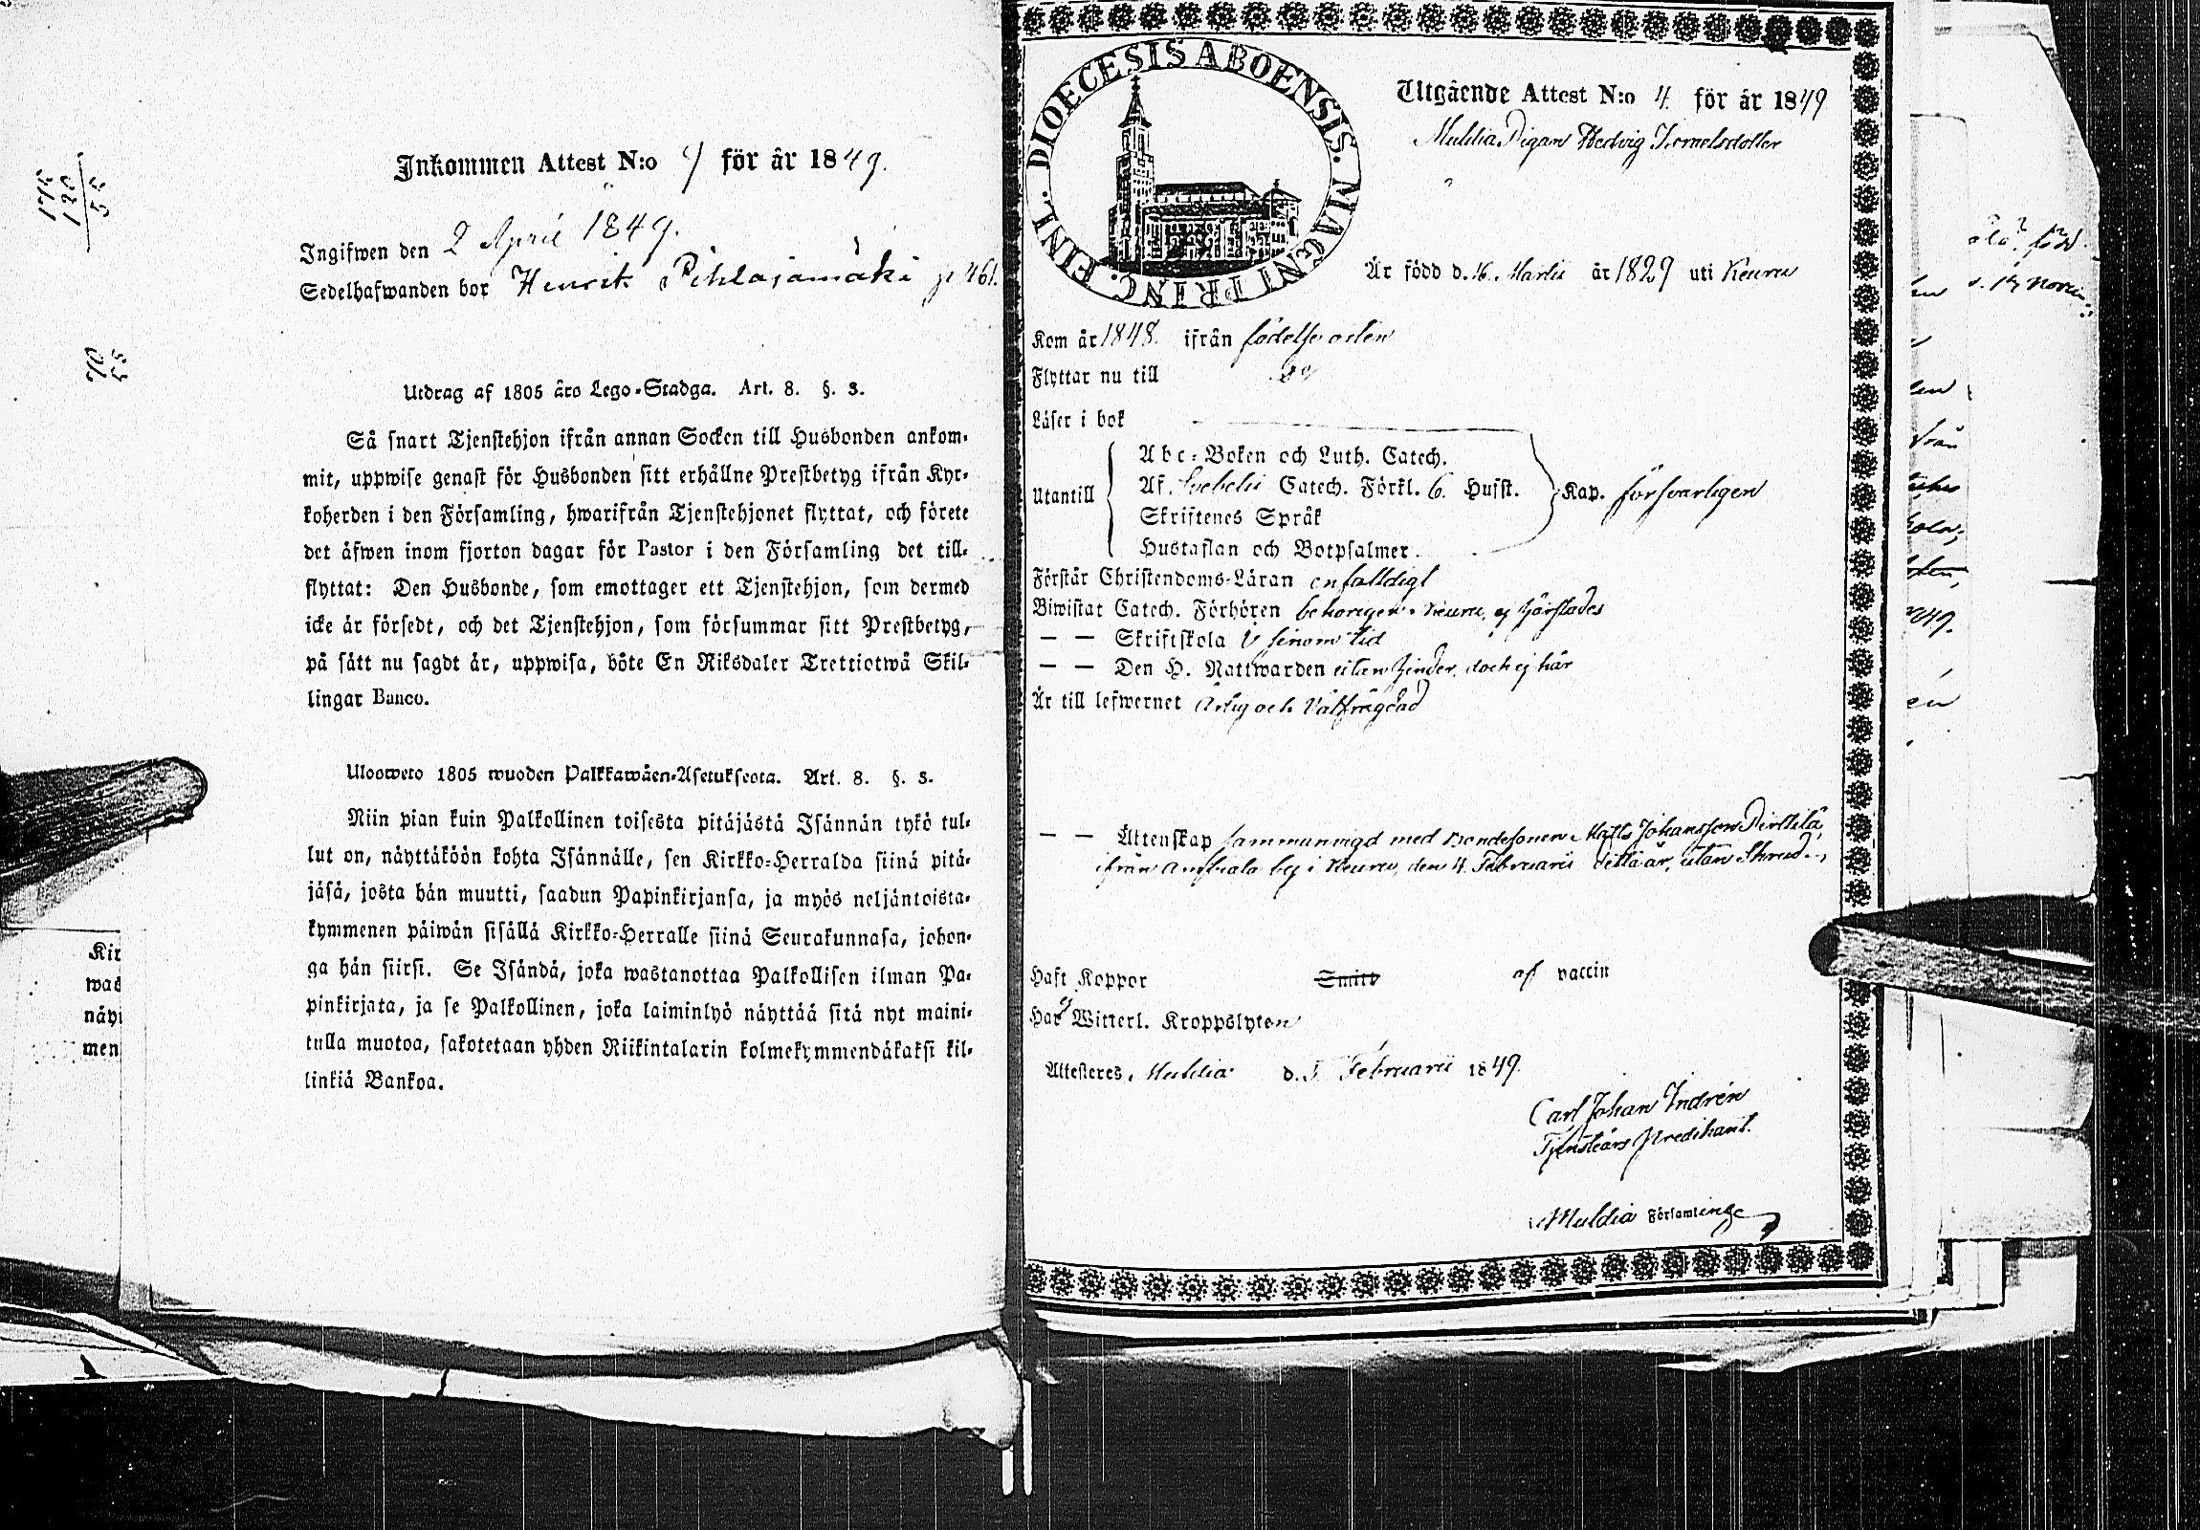 Inkommen Attest N:o 4 för år 1849.
Ingifwen den 2 April 1849.
Sedelhafwanden bor Henrik Pihlajamäki p. 461.
Utdrag af 1805 års Lego-Stadga. Art. 8. §. 3.
Så snart Tjenstehjon ifrån annan Socken till Husbonden ankom-
mit, uppwise genast för Husbonden sitt erhållne Prestbetyg ifrån Kyr-
koherden i den Församling, hwarifrån Tjenstehjonet flyttat, och förete
det äfwen inom fjorton dagar för Pastor i den Församling det till-
flyttat: Den Husbonde, som emottager ett Tjenstehjon, som dermed
icke är försedt, och det Tjenstehjon, som försummar sitt Prestbetyg,
på sätt nu sagdt är, uppwisa, böte En Riksdaler Trettiotwå Skil-
lingar Banco.
Ulosweto 1805 wuoden Palkkawäen-Asetuksesta. Art. 8. §. 3.
Niin pian kuin Palkollinen toisesta pitäjästä Isännän tykö tul-
lut on, näyttäköön kohta Isännälle, sen Kirkko-Herralda siinä pitä-
jäsä, josta hän muutti, saadun Papinkirjansa, ja myös neljäntoista-
kymmenen päiwän sisällä Kirkko-Herralle siinä Seurakunnasa, johon-
ga hän siirsi. Se Isändä, joka wastanottaa Palkollisen ilman Pa-
pinkirjata, ja se Palkollinen, joka laiminlyö näyttää sitä nyt maini-
tulla muotoa, sakotetaan yhden Riikintalarin kolmekymmendäkaksi kil-
linkiä Bankoa.
Kir
näyt
men
DIOECESIS ABOENSIS. MAGNI PRINC. FINL.
Utgående Attest N:o 4. för år 1849
Muldia Pigan Hedvig Ismelsdotter
Är född d. 16 Martii år 1829 uti Keuru
Kom år 1848. ifrån födelse orten
Flyttar nu till
Läser i bok
Utantill
Abc-Boken och Luth. Catech.
Af Svebelii Catech. Förkl. 6. Hufst.
Skriftenes Språk
Hustaflan och Botpsalmer.
Kap. försvarligen
Förstår Christendoms-Läran enfalldigt
Biwistat Catech. Förhören behörigen i Keuru, ej härstädes
— — Skriftskola i sinom tid
— — Den H. Nattwarden utan hinder, doch ej här
Är till lefwernet Ärlig och Välfrägdad
— — Äktenskap sammanvigd med Bondesonen Matts Johansson Pirttilä,
ifrån Ampiala by i Keuru, den 4. Februarii detta år, utan
Haft Koppor af vaccin
Har ej Witterl. Kroppslyten
Attesteres, Muldia d. 5 Februarii 1849.
Carl Johan Indrén
Tjensteårs Predikant.
i Muldia Församling
född
från
1849.